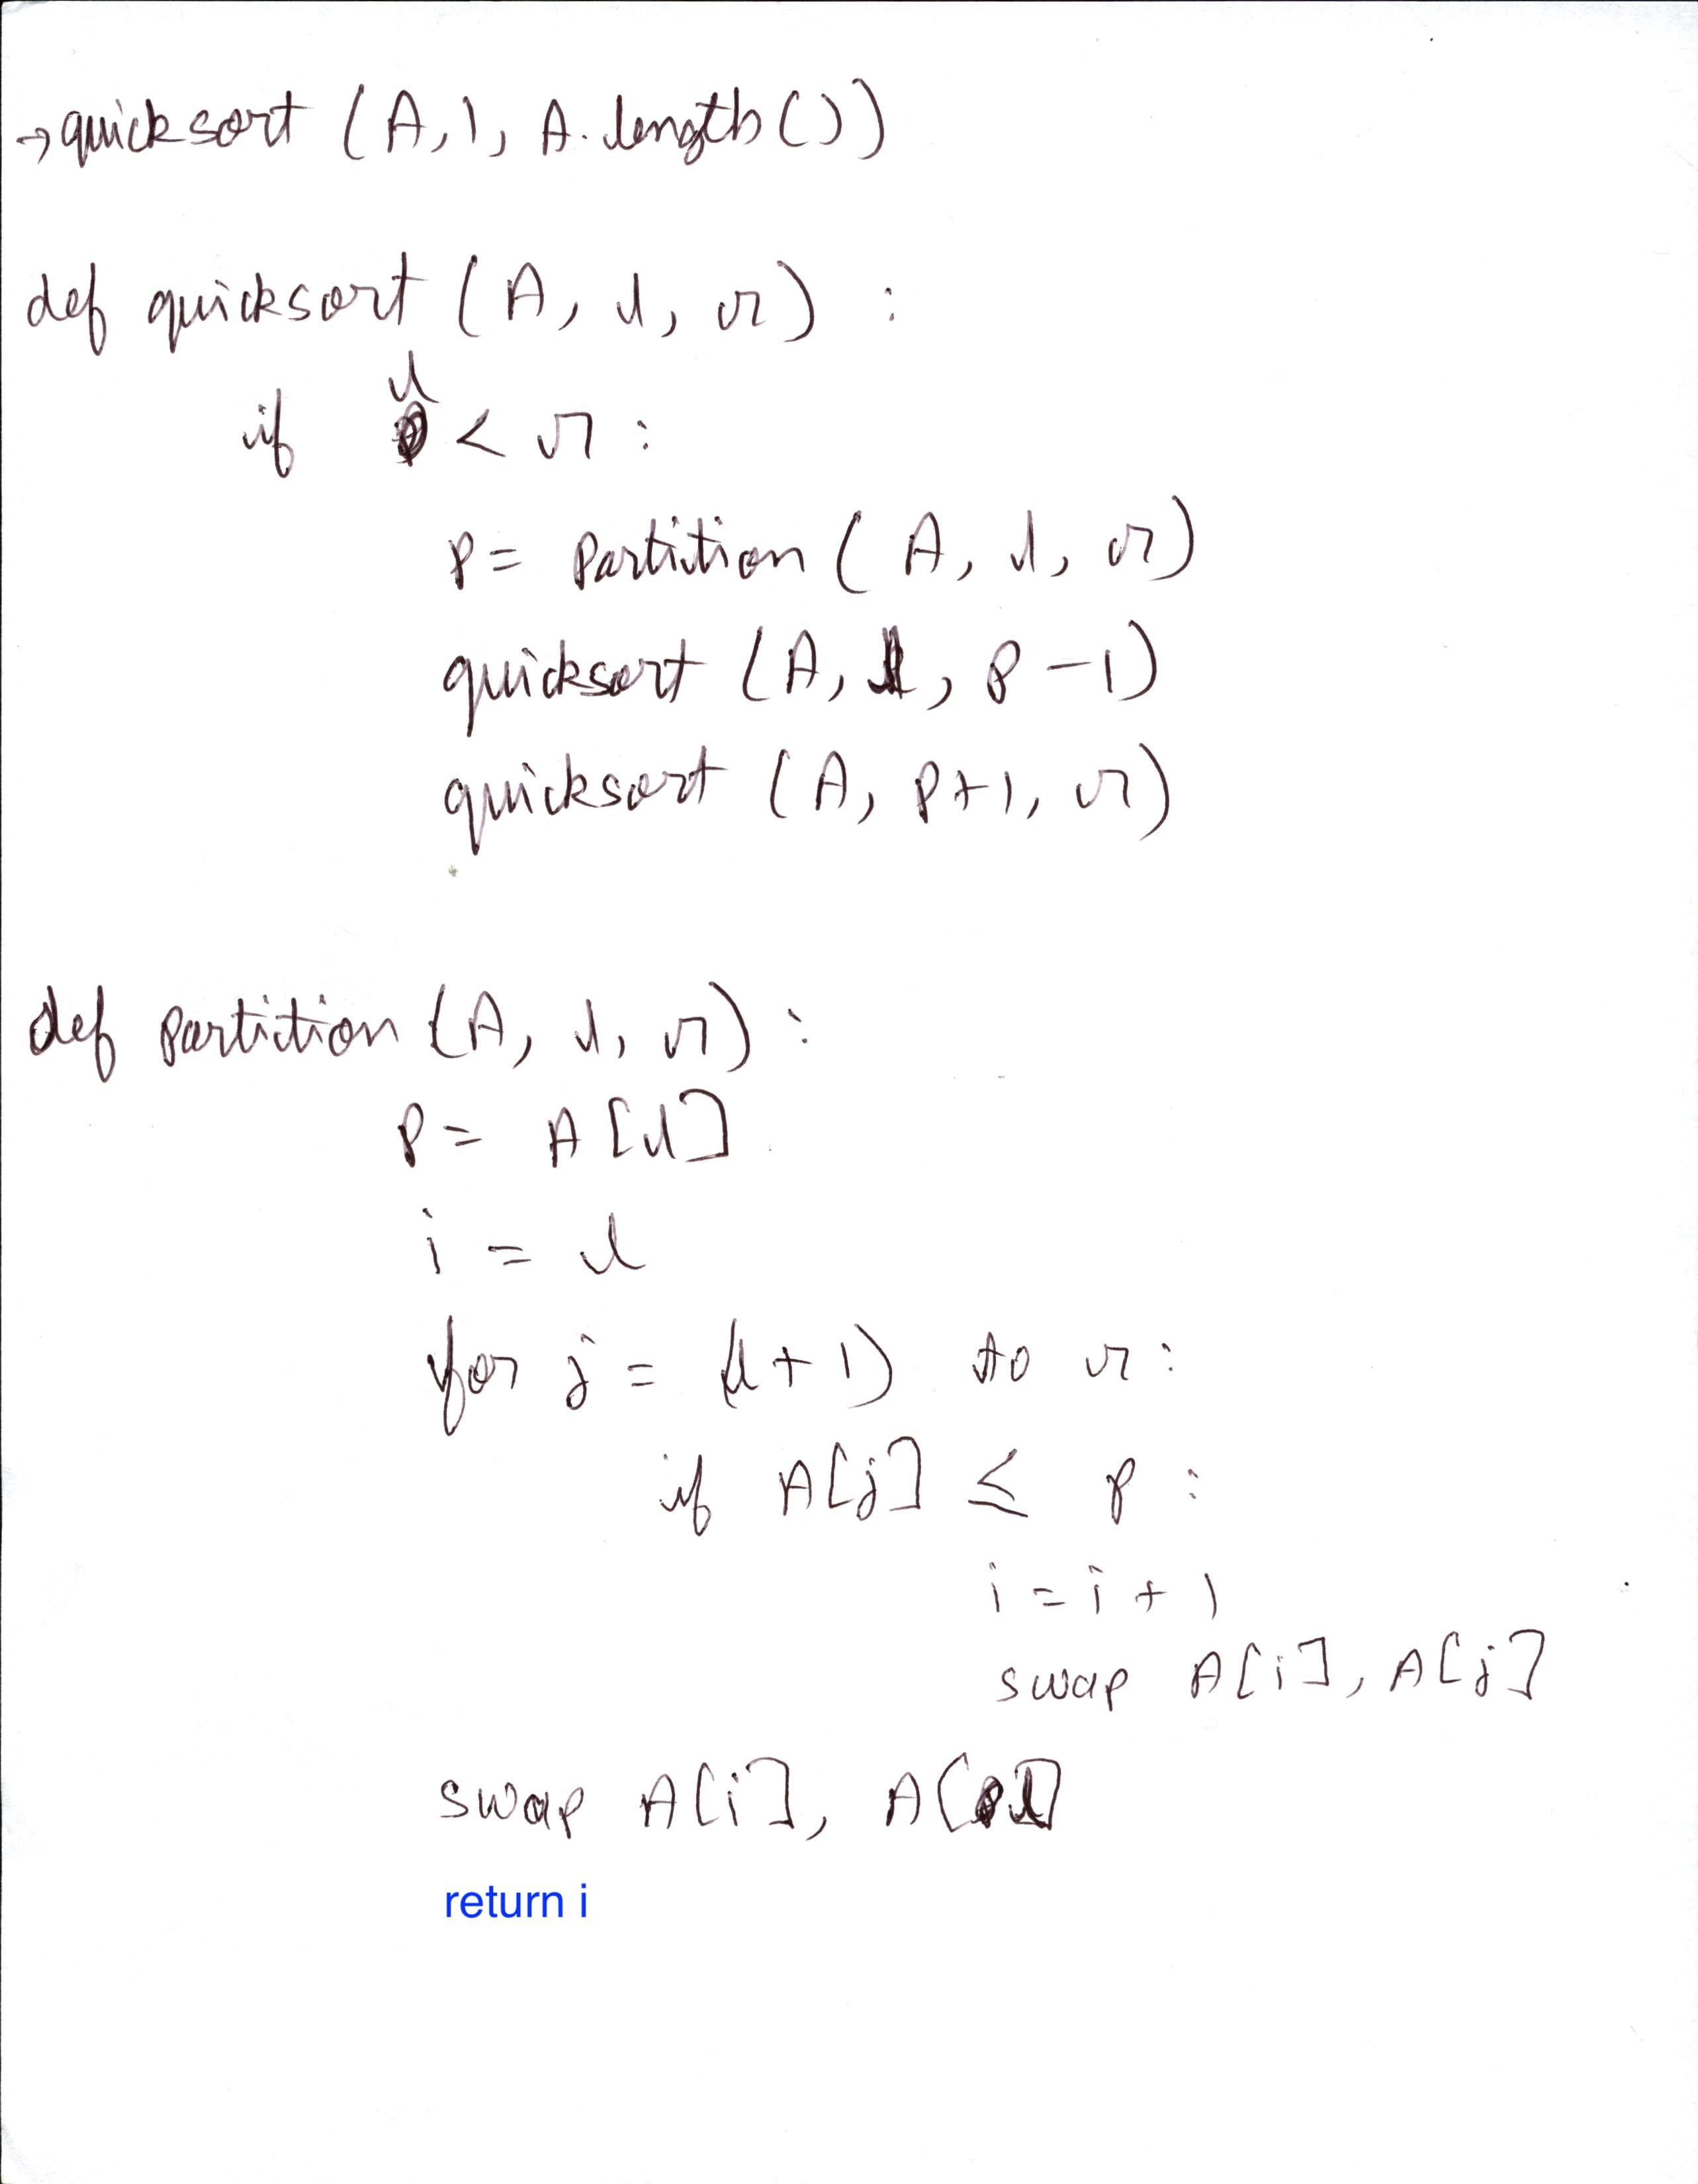 → quicksort (A, 1, A.length())
def quicksort (A, l, r) :
if l < r :
p = Partition (A, l, r)
quicksort (A, l, p -1)
quicksort (A, p+1, r)
def partition (A, l, r) :
p = A[l]
i = l
for j = (l+1) to r :
if A[j] ≤ p :
i = i + 1
swap A[i], A[j]
swap A[i], A[l]
return i